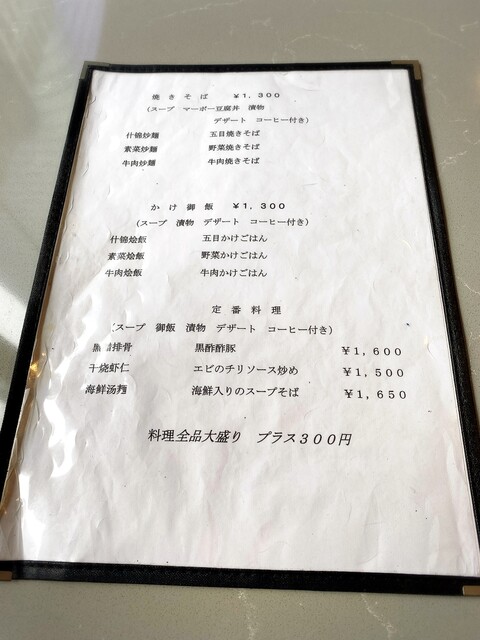 焼きそば ¥1,300
(スープ マーボー豆腐丼 漬物
デザート コーヒー付き)
什锦炒麺 五目焼きそば
素菜炒麺 野菜焼きそば
牛肉炒麺 牛肉焼きそば
かけ御飯 ¥1,300
(スープ 漬物 デザート コーヒー付き)
什锦烩飯 五目かけごはん
素菜烩飯 野菜かけごはん
牛肉烩飯 牛肉かけごはん
定番料理
(スープ 御飯 漬物 デザート コーヒー付き)
黒醋排骨 黒酢酢豚 ¥1,600
干烧虾仁 エビのチリソース炒め ¥1,500
海鲜汤麺 海鮮入りのスープそば ¥1,650
料理全品大盛り プラス300円